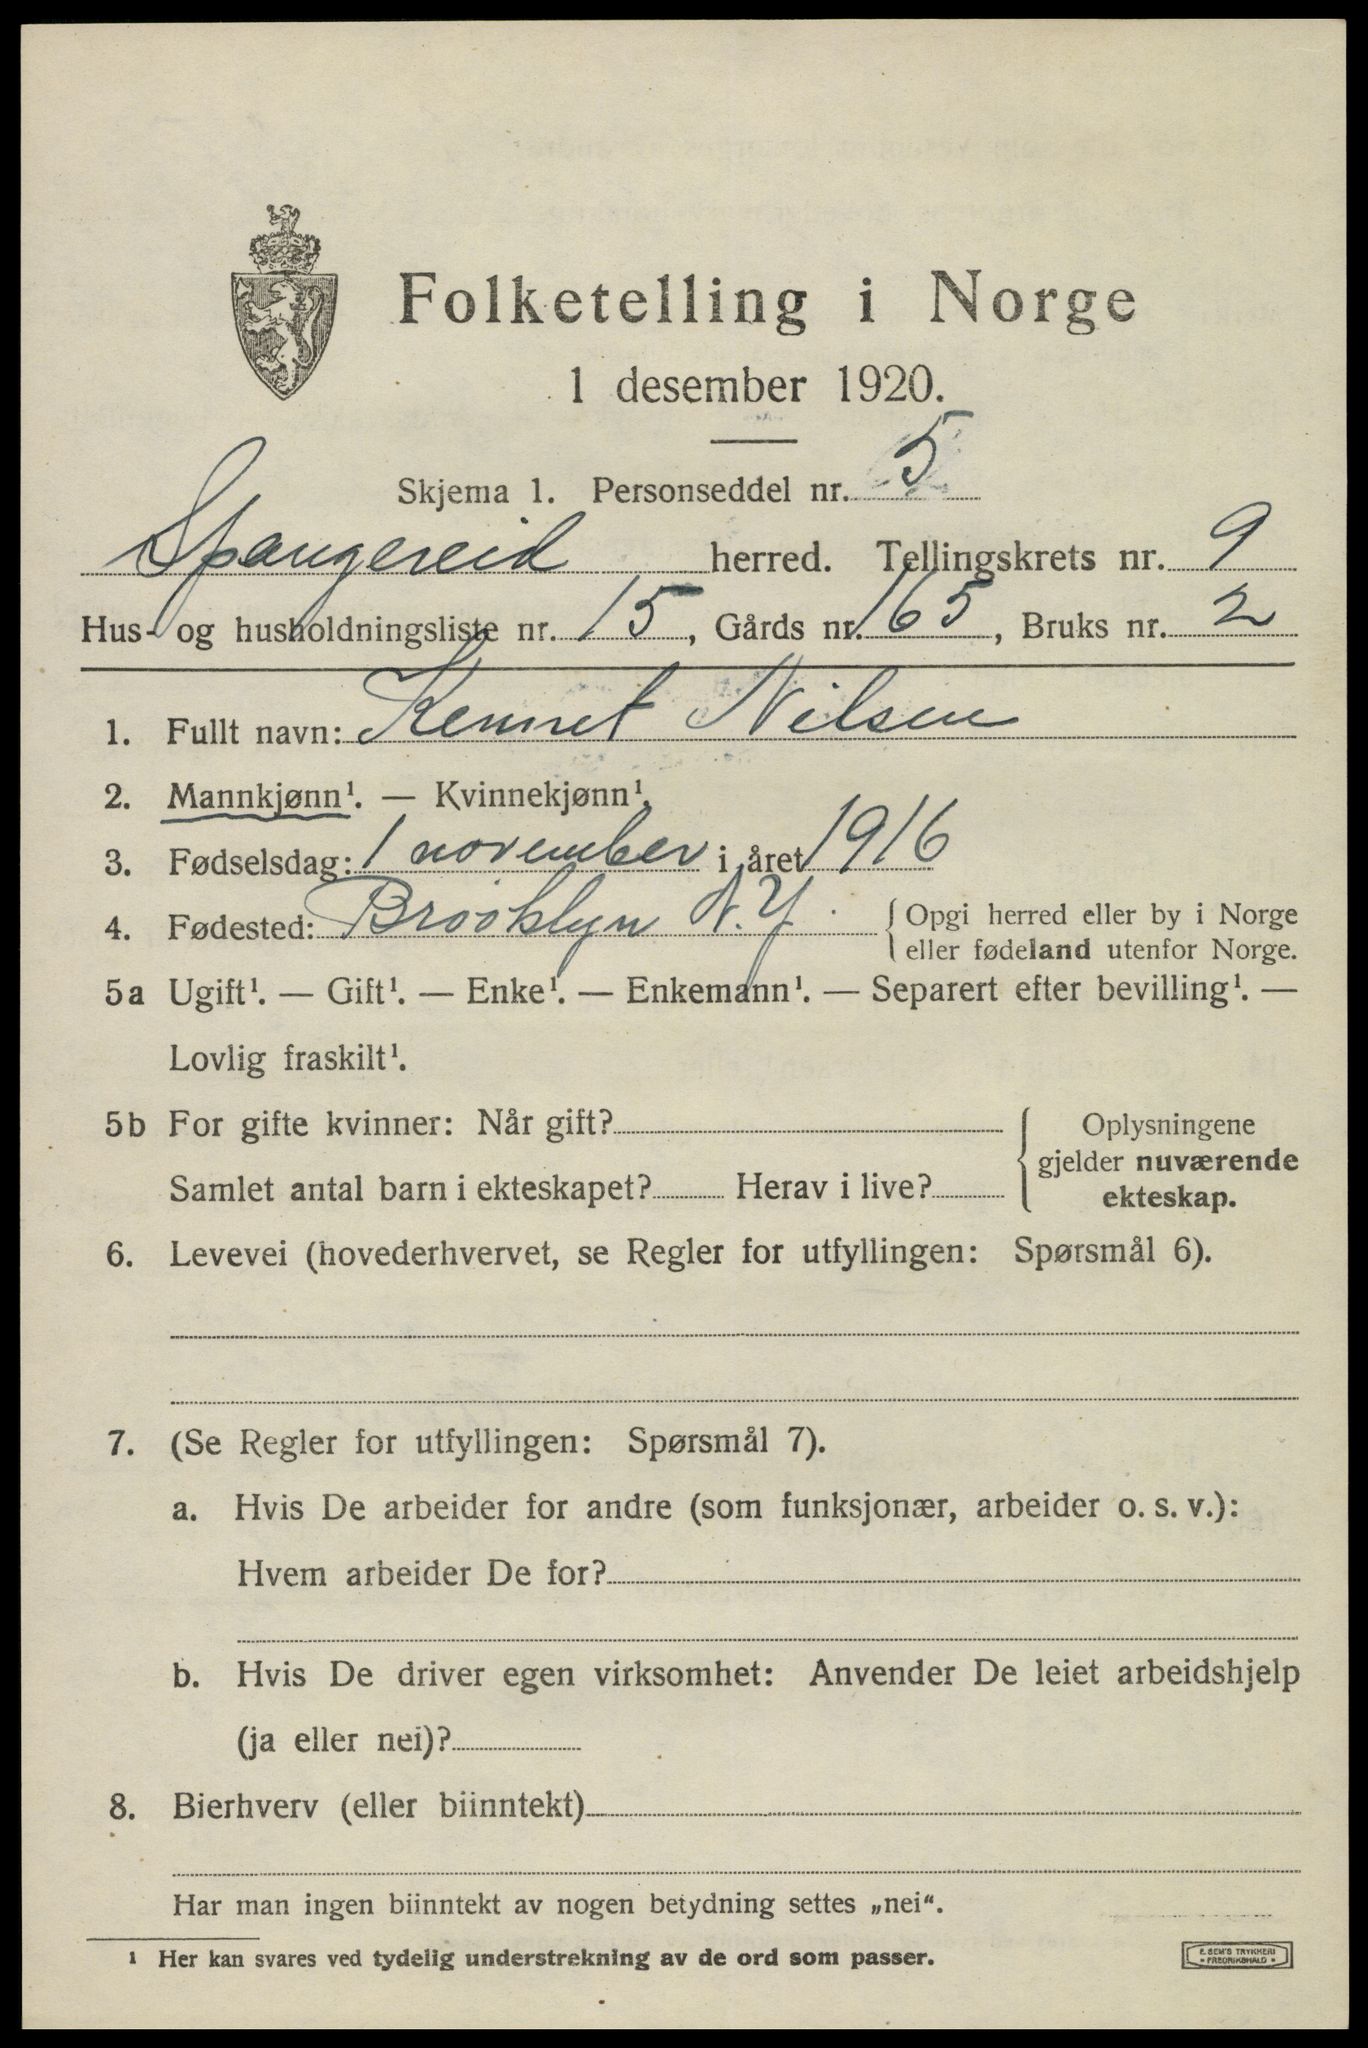 Folketelling i Norge
1 desember 1920.
Skjema 1. Personseddel nr. 5
Spangereid herred. Tellingskrets nr. 9
Hus- og husholdningsliste nr. 15, Gårds nr. 165, Bruks nr. 2
1. Fullt navn: Kennet Nilsen
2. Mannkjønn¹. — Kvinnekjønn¹.
3. Fødselsdag: 1 november i året 1916
4. Fødested: Brooklyn N.Y. Opgi herred eller by i Norge
eller fødeland utenfor Norge.
5a Ugift¹. — Gift¹. — Enke¹. — Enkemann¹. — Separert efter bevilling¹. —
Lovlig fraskilt¹.
5b For gifte kvinner: Når gift? Oplysningene
gjelder nuværende
Samlet antal barn i ekteskapet? Herav i live? ekteskap.
6. Levevei (hovederhvervet, se Regler for utfyllingen: Spørsmål 6).
7. (Se Regler for utfyllingen: Spørsmål 7).
a. Hvis De arbeider for andre (som funksjonær, arbeider o. s. v.):
Hvem arbeider De for?
b. Hvis De driver egen virksomhet: Anvender De leiet arbeidshjelp
(ja eller nei)?
8. Bierhverv (eller biinntekt)
Har man ingen biinntekt av nogen betydning settes „nei“.
¹ Her kan svares ved tydelig understrekning av de ord som passer.
E. SEM'S TRYKKERI
FREDRIKSHALD